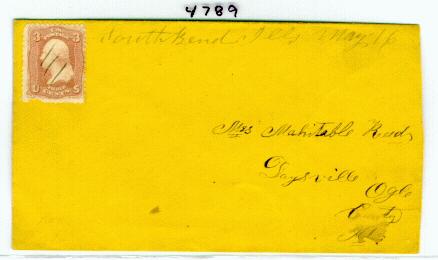 4789
South Bend Ills May 16
3 3
U S
Mrs Mahitable Reed
Daysville
Ogle
County
Ills